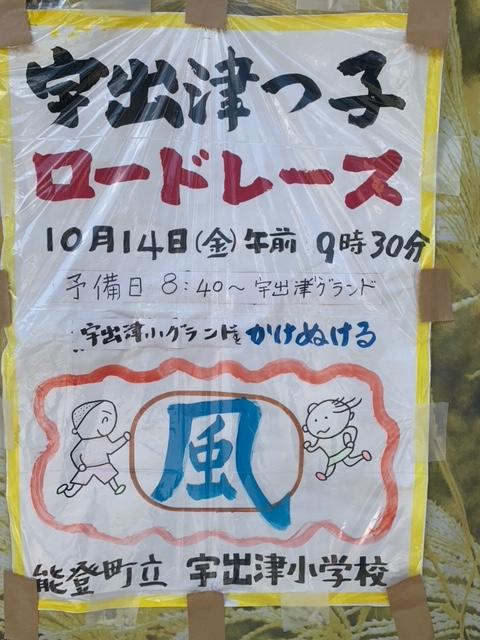 宇出津っ子
ロードレース
10月14日(金)午前 9時30分
予備日 8:40~ 宇出津グランド
宇出津小グランドをかけぬける
風
能登町立 宇出津小学校